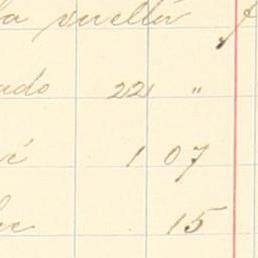 la vuelta
ado 22 "
1 07
15